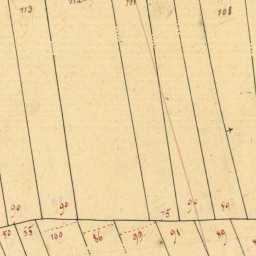 113 112 111 108
90 90 75 90 40
50 55 100 86 99 91 49